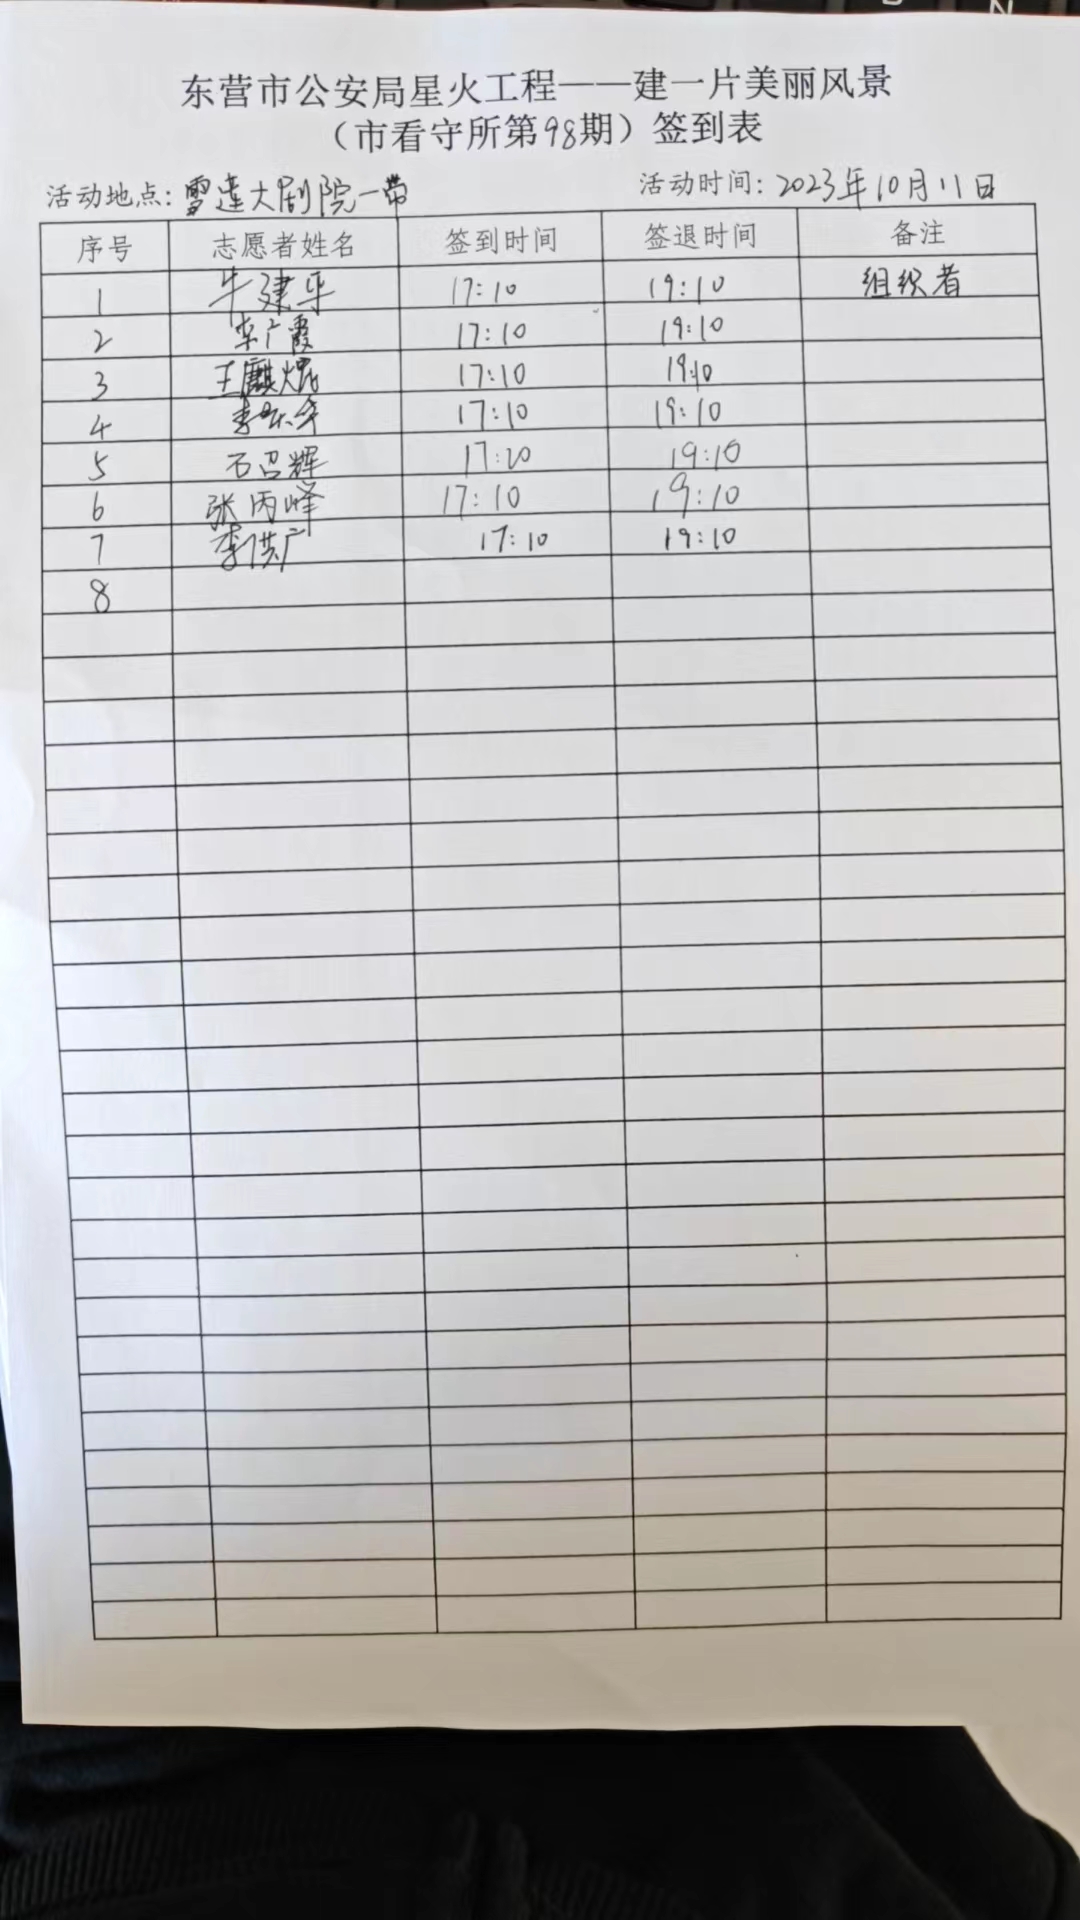 东营市公安局星火工程——建一片美丽风景
（市看守所第98期）签到表
活动地点：雪莲大剧院一带 活动时间：2023年10月11日
序号 志愿者姓名 签到时间 签退时间 备注
1 牛建华 17:10 19:10 组织者
2 李广霞 17:10 19:10
3 王麒焜 17:10 19:10
4 17:10 19:10
5 石召辉 17:20 19:10
6 张丙峰 17:10 19:10
7 李洪广 17:10 19:10
8